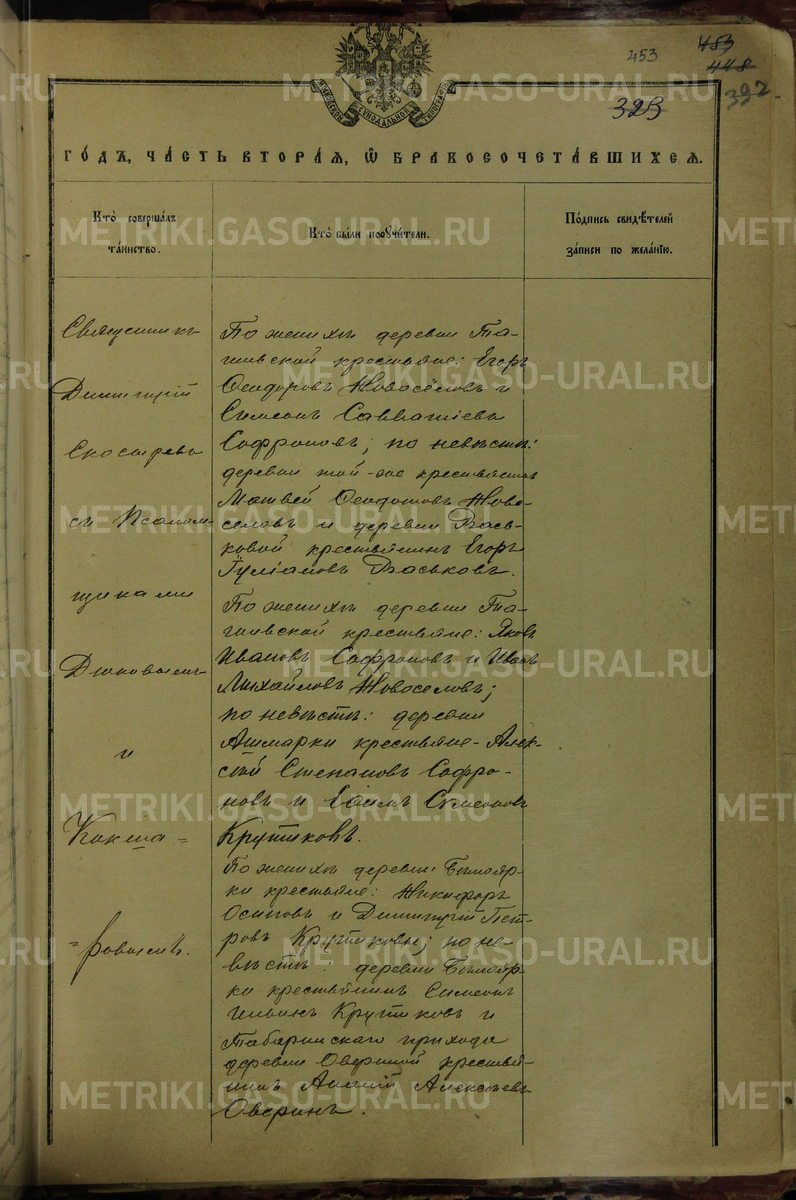 453
453
448
392.
323
МОСКОВСКОЙ СѴНОДАЛЬНОЙ ТѴПОГРАФІИ
ГОДЪ, ЧАСТЬ ВТОРАЯ, Ѡ БРАКОСОЧЕТАВШИХСЯ.
Кто совершалъ
таинство.
Кто были поручители.
Подпись свидѣтелей
записи по желанію.
Священникъ
Димитрій
Скосыревъ
съ псалом-
щиками
и
Кокша=
=ровымъ.
По женихѣ деревни Та-
гильской крестьяне: Егоръ
Ѳеодоровъ Новосёловъ и
Симеонъ Савватіевъ
Софроновъ; по невѣстѣ:
деревни той-же крестьянинъ
Матвей Ѳеодотовъ Ново-
селовъ и деревни Вась-
ковой крестьянинъ Егоръ
Васьковъ.
По женихѣ деревни Та-
гильской крестьяне: Яковъ
Ивановъ Софроновъ и Иванъ
Михайловъ Новоселовъ;
по невѣстѣ: деревни
Ашмарки крестьяне Алек-
сѣй Степановъ Софро-
новъ и Симеоновъ
Крутиковъ.
По женихѣ деревни
ки крестьяне: Никифоръ
Осиповъ и Димитрій Пет-
ровъ Крутиковы; по не-
вѣстѣ: деревни
ки крестьянинъ Симеонъ
Ильинъ Крутиковъ и
Табаринскаго прихода
деревни Овериной крестья-
нинъ Алексѣевъ
Оверинъ.
METRIKI.GASO-URAL.RU